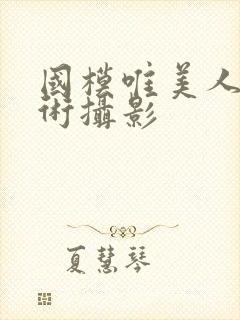 國模唯美人
術攝影
夏慧琴